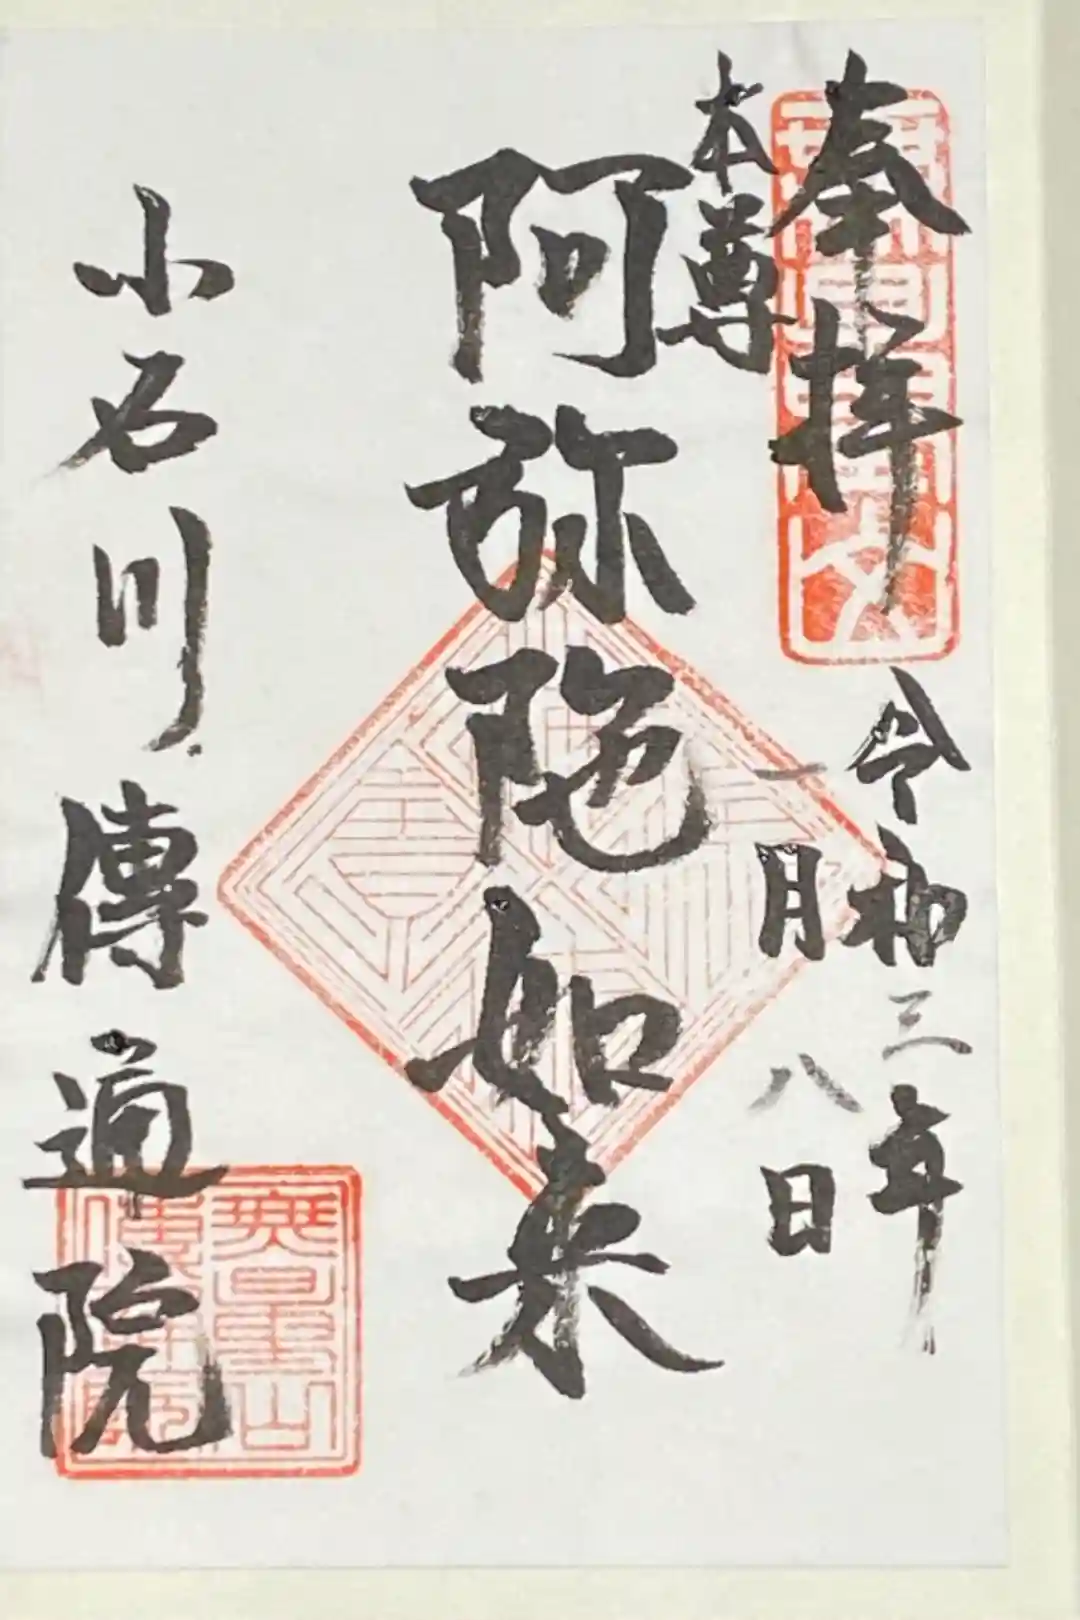 奉拝
令和三年
一月八日
本尊
阿弥陀如来
小石川傳通院
無量山
傳通院